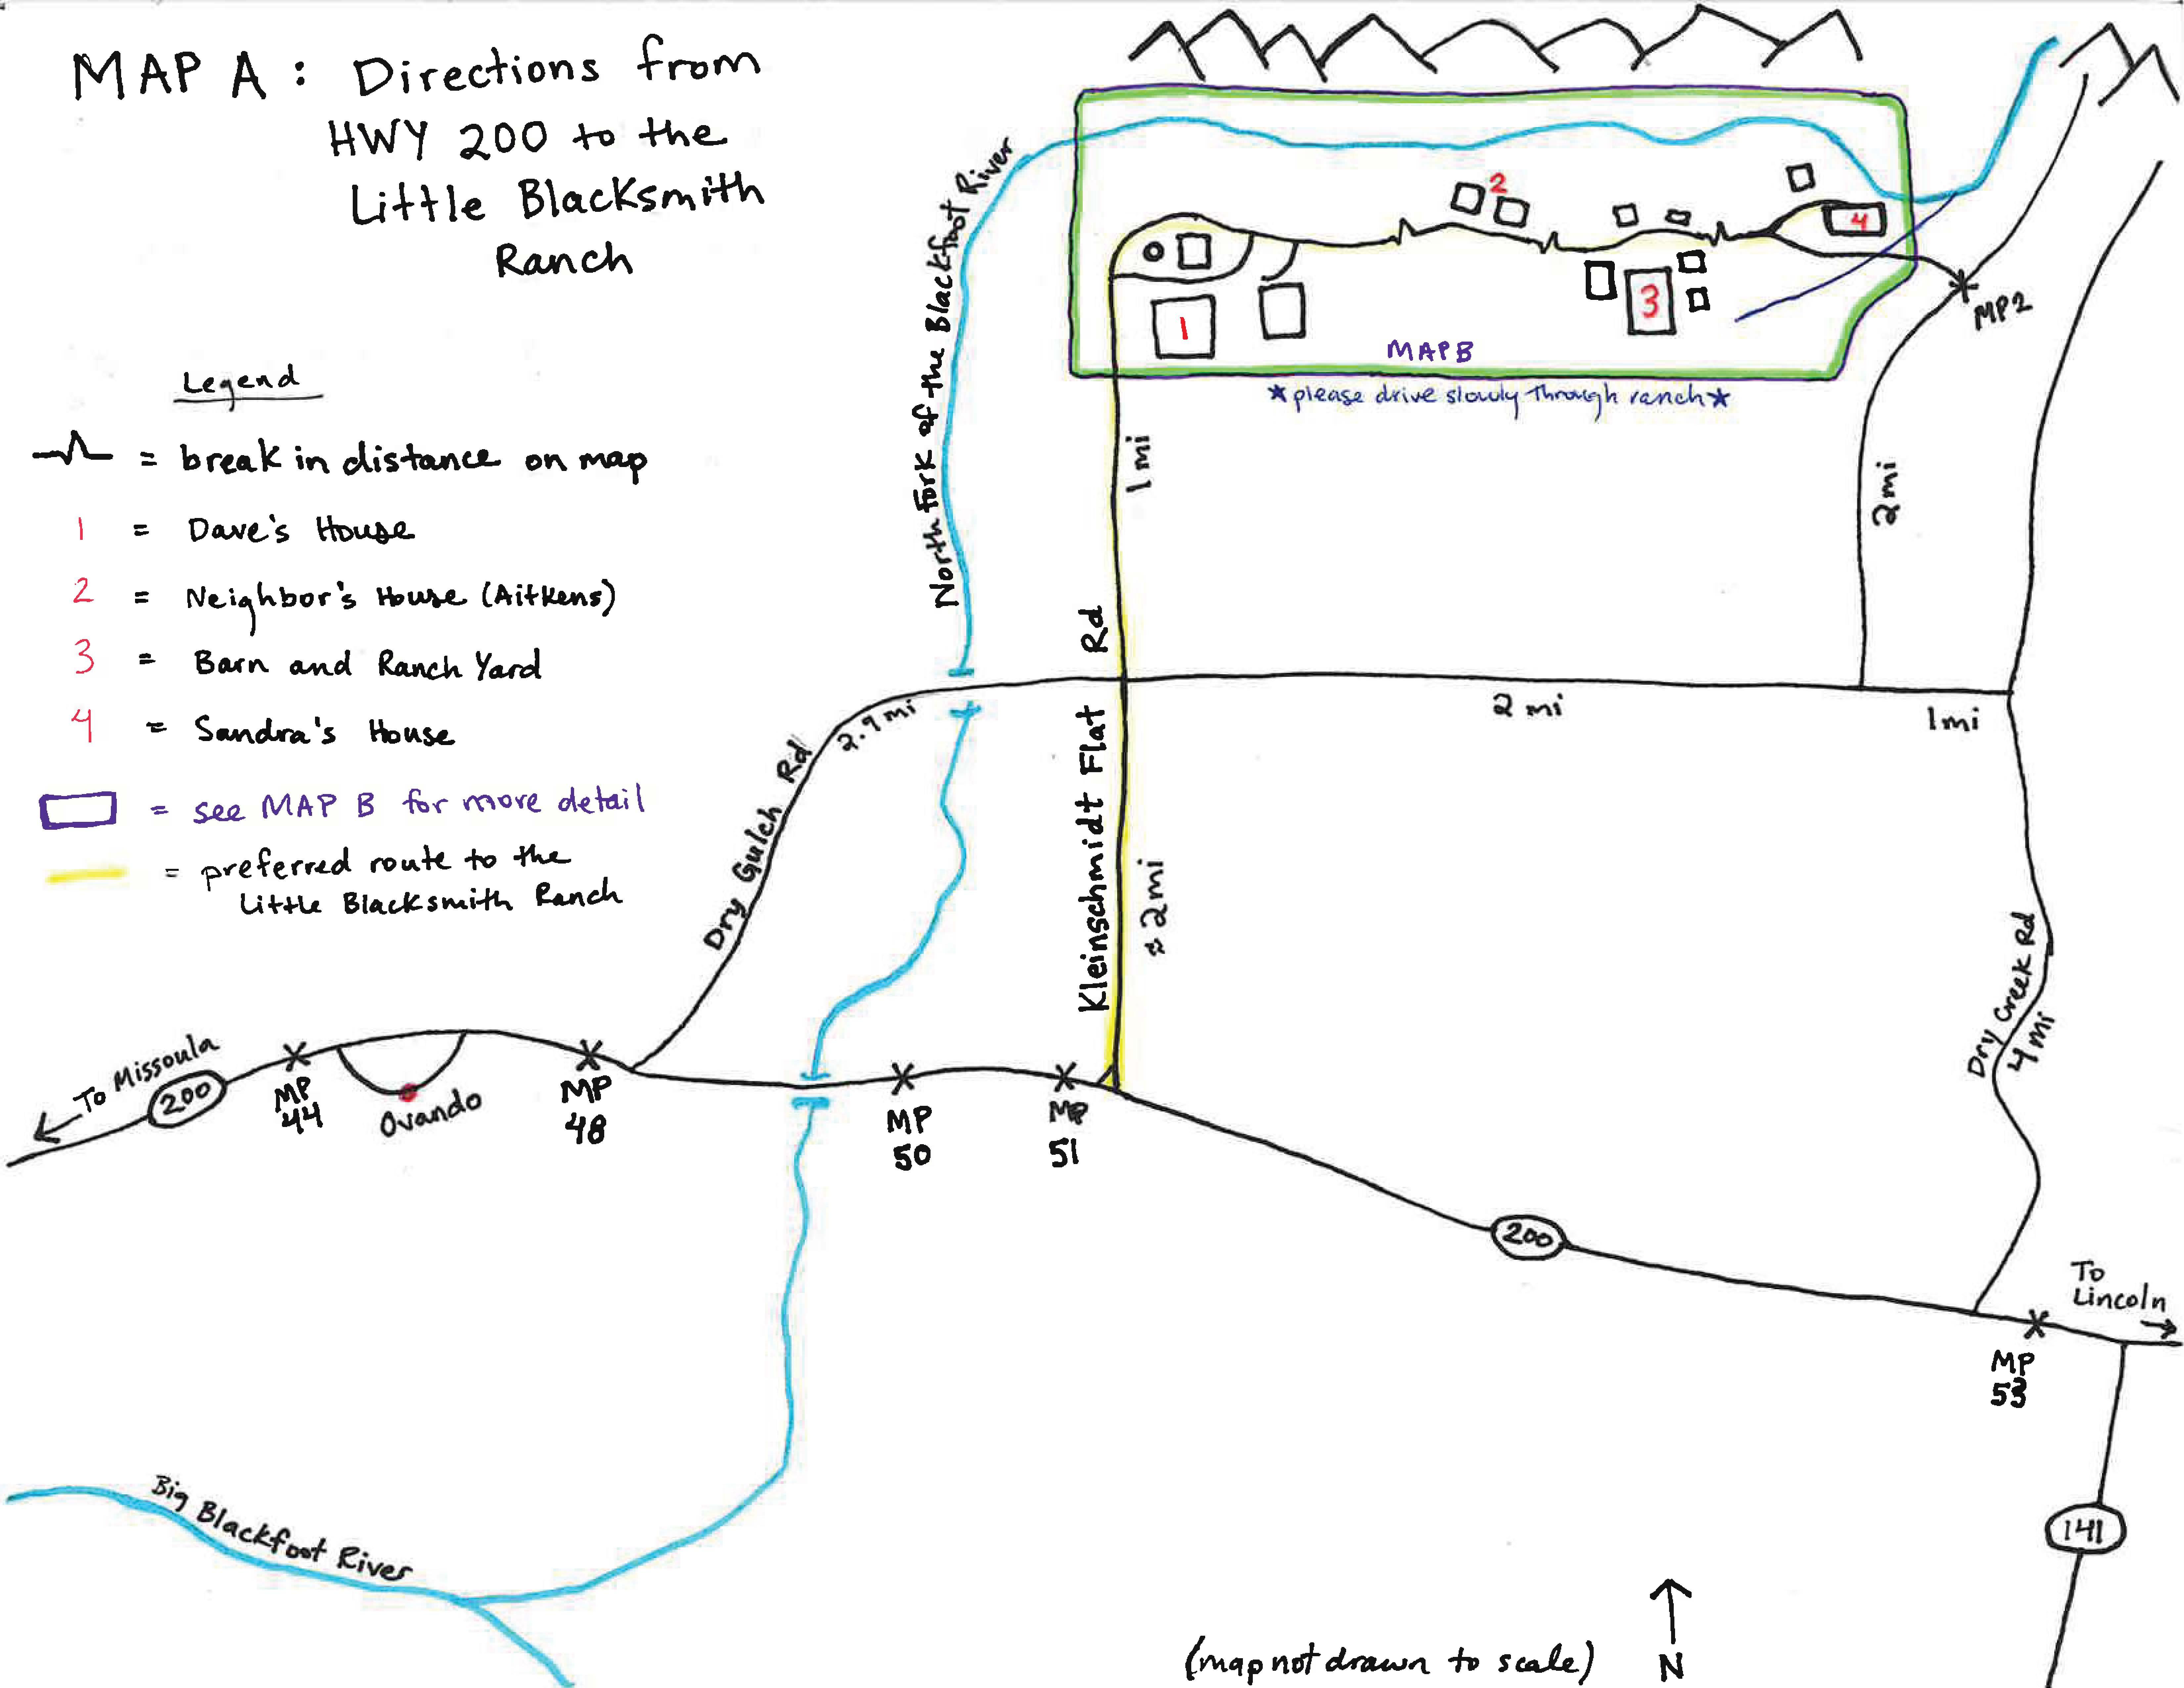 MAP A : Directions from
HWY 200 to the
Little Blacksmith
Ranch
Legend
= break in distance on map
1 = Dave's House
2 = Neighbor's House (Aitkens)
3 = Barn and Ranch Yard
4 = Sandra's House
= see MAP B for more detail
= preferred route to the
Little Blacksmith Ranch
North Fork of the Blackfoot River
1
2
3
4
MAP B
*please drive slowly through ranch*
MP2
1 mi
2 mi
Kleinschmidt Flat Rd
≈ 2mi
2 mi
1mi
2.9 mi
Dry Gulch Rd
Dry Creek Rd
4 mi
To Missoula
200
MP
44
Ovando
MP
48
MP
50
MP
51
200
To
Lincoln
MP
53
141
Big Blackfoot River
(map not drawn to scale)
N